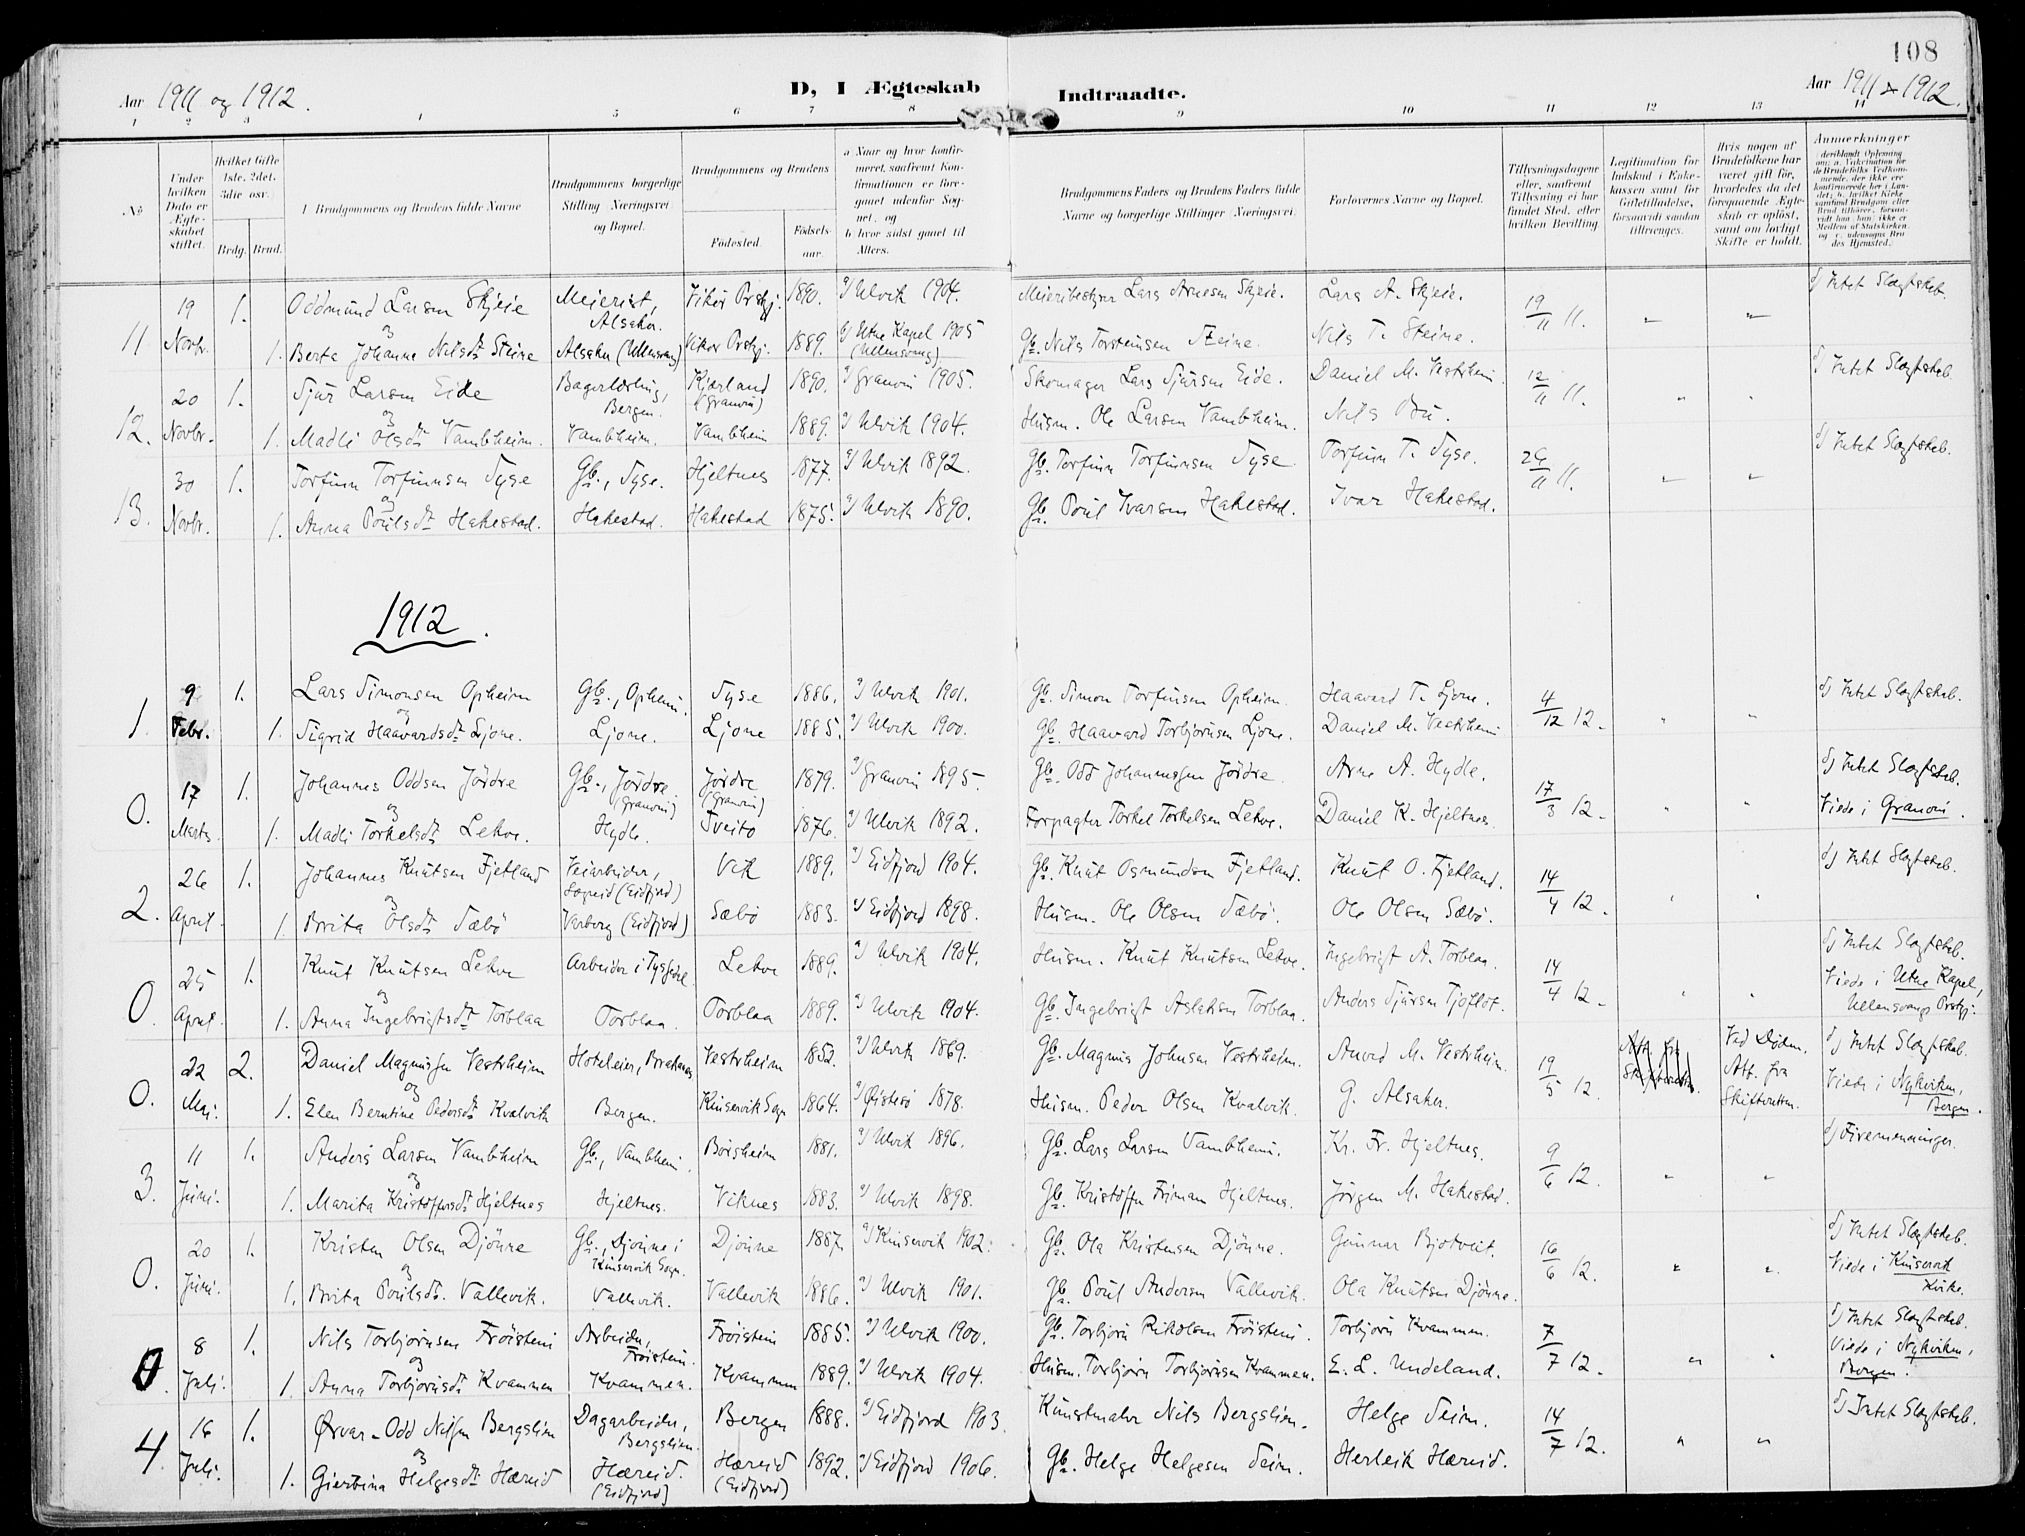 108
Aar 1911 og 1912.
D, I Ægteskab Indtraadte.
Aar 1911 & 1912.
1 2 3 4 5 6 7 8 9 10 11 12 13 14
No
Under hvilken Dato er Ægteskabet stiftet.
Hvilket Gifte 1ste, 2det, 3die osv.
Brdg. Brud.
Brudgommens og Brudens fulde Navne
Brudgommens borgerlige Stilling Næringsvei og Bopæl.
Brudgommens og Brudens
Födested.
Födselsaar.
a Naar og hvor konfirmeret, saafremt Konfirmationen er foregaaet udenfor Sognet, og
b hvor sidst gaaet til Alters.
Brudgommens Faders og Brudens Faders fulde Navne og borgerlige Stillinger Næringsvei.
Forlovernes Navne og Bopæl.
Tillysningsdagene eller, saafremt Tillysning ei har fundet Sted, efter hvilken Bevilling
Legitimation for Indskud i Enkekassen samt for Giftetilladelse, forsaavidt saadan tiltrænges.
Hvis nogen af Brudefolkene har været gift før, hvorledes da det foregaaende Ægteskab er opløst, samt om lovligt Skifte er holdt.
Anmerkninger
11. 19 Novbr. 1. Oddmund Larsen Skjeie Meierist, Alsaker. Vikør Prstgj. 1890. a) Ulvik 1904. Meieribestyrer Lars Arnesen Skjeie. Lars A. Skjeie. 19/11 11. d) Intet Slægtskab.
og
1. Berta Johanne Nilsdt Steine Alsaker (Ullensvang) Vikør Prstgj. 1889. a) Utne Kapel 1905 (Ullensvang) Gb. Nils Torsteinsen Steine. Nils T. Steine.
12. 20 Novbr. 1. Sjur Larsen Eide Bagerlærling, Bergen. Kjærland (Granvin) 1890. a) Granvin 1905. Skomager Lars Sjursen Eide. Daniel M. Vestrheim. 12/11 11. d) Intet Slægtskab.
og
1. Madli Olsdt Vambheim. Vambheim. Vambheim 1889. a) Ulvik 1904. Husm. Ole Larsen Vambheim. Nils Bu.
13. 30 Novbr. 1. Torfinn Torfinnsen Syse Gb., Syse. Hjeltnes 1877. a) Ulvik 1892. Gb. Torfinn Torfinnsen Syse. Torfinn T. Syse. 26/11 11. d) Intet Slægtskab.
og
1. Anna Poulsdt Hakestad. Hakestad. Hakestad 1875. a) Ulvik 1890. Gb. Poul Ivarsen Hakestad. Ivar Hakestad.
1912.
1. 9 Febr. 1. Lars Simonsen Opheim Gb., Opheim. Syse 1886. a) Ulvik 1901. Gb. Simon Torfinsen Opheim. Haavard T. Ljone. 4/12 12. d) Intet Slægtskab.
og
1. Sigrid Haavardsdt Ljone. Ljone. Ljone 1885. a) Ulvik 1900. Gb. Haavard Torbjørnsen Ljone. Daniel M. Vestrheim
0. 17 Marts. 1. Johannes Oddsen Jördre Gb., Jördre. (Granvin) Jördre (Granvin) 1879. a) Granvin 1895. Gb. Odd Johannessen Jördre. Arne A. Hydle. 17/3 12. d) Intet Slægtskab. Viede i Granvin.
og
1. Madli Torkelsdt Lekve. Hydle. Tveito 1876. a) Ulvik 1892. Forpagter Torkel Torkelsen Lekve. Daniel K. Hjeltnes.
2. 26 April. 1. Johannes Knutsen Fjetland Veiarbeider, Sogneid (Eidfjord) Vik 1889. a) Eidfjord 1904. Gb. Knut Osmundson Fjetland. Knut O. Fjetland. 14/4 12. d) Intet Slægtskab.
og
1. Brita Olsdt Sæbö Varberg (Eidfjord) Sæbö 1883. a) Eidfjord 1898. Husm. Ole Olsen Sæbö. Ole Olsen Sæbö.
0. 25 April. 1. Knut Knutsen Lekve Arbeider i Tyssedal Lekve 1889. a) Ulvik 1904. Husm. Knut Knutsen Lekve. Ingebrigt A. Torblaa. 14/4 12. d) Intet Slægtskab. Viede i Utne Kapel, Ullensvangs Prstgj.
og
1. Anna Ingebrigtsdt Torblaa Torblaa. Torblaa 1889. a) Ulvik 1904. Gb. Ingebrigt Aslaksen Torblaa. Anders Sjursen Tjoflot.
0. 22 Mai. 2. Daniel Magnussen Vestrheim Hoteleier, Brakanes Vestrheim 1852. a) Ulvik 1869. Gb. Magnus Johnsen Vestrheim. Anved M. Vestrheim. 19/5 12. Ved Döden. Att. fra Skifteretten. d) Intet Slægtskab. Viede i Nykirken, Bergen.
og
1. Elen Berntine Pedersdt Kvalvik Bergen. Kinservik Sogn 1864. a) Øistesö 1878. Husm. Peder Olsen Kvalvik. G. Alsaker.
3. 11 Juni. 1. Anders Larsen Vambheim Gb., Vambheim. Börsheim 1881. a) Ulvik 1896. Gb. Lars Larsen Vambheim. Kr. Fr. Hjeltnes. 9/6 12. d) Firemenninger.
og
1. Marita Kristoffersdt Hjeltnes Hjeltnes. Viknes 1883. a) Ulvik 1898. Gb. Kristoffer Friman Hjeltnes. Jörgen M. Hakestad.
0. 20 Juni. 1. Kristen Olsen Djönne Gb., Djönne i Kinservik Sogn. Djönne 1887. a) Kinservik 1902. Gb. Ola Kristensen Djönne. Gunnar Bjotveit. 16/6 12. d) Intet Slægtskab. Viede i Kinservik Kirke.
og
1. Brita Poulsdt. Vallevik. Vallevik. Vallevik 1886. a) Ulvik 1901. Gb. Poul Andersen Vallevik. Ola Knutsen Djönne.
0. 8 Juli. 1. Nils Torbjörnsen Fröistein Arbeider, Fröistein. Fröistein 1885. a) Ulvik 1900. Gb. Torbjörn Rikolsen Fröistein. Torbjörn Kvammen. 7/7 12. d) Intet Slægtskab. Viede i Nykirken, Bergen.
og
1. Anna Torbjörnsdt Kvammen Kvammen. Kvammen 1889. a) Ulvik 1904. Husm. Torbjörn Torbjörnsen Kvammen. E. L. Undeland.
4. 16 Juli. 1. Ørvar-Odd Nilsen Bergslien Dagarbeider, Bergslien. Bergen 1888. a) Eidfjord 1903. Kunstmaler Nils Bergslien. Helge Seim. 14/7 12. d) Intet Slægtskab.
og
1. Giertina Helgesdt Hæreid Hæreid. (Eidfjord) Hæreid (Eidfjord) 1892. a) Eidfjord 1906. Gb. Helge Helgesen Seim. Herleik Hæreid.